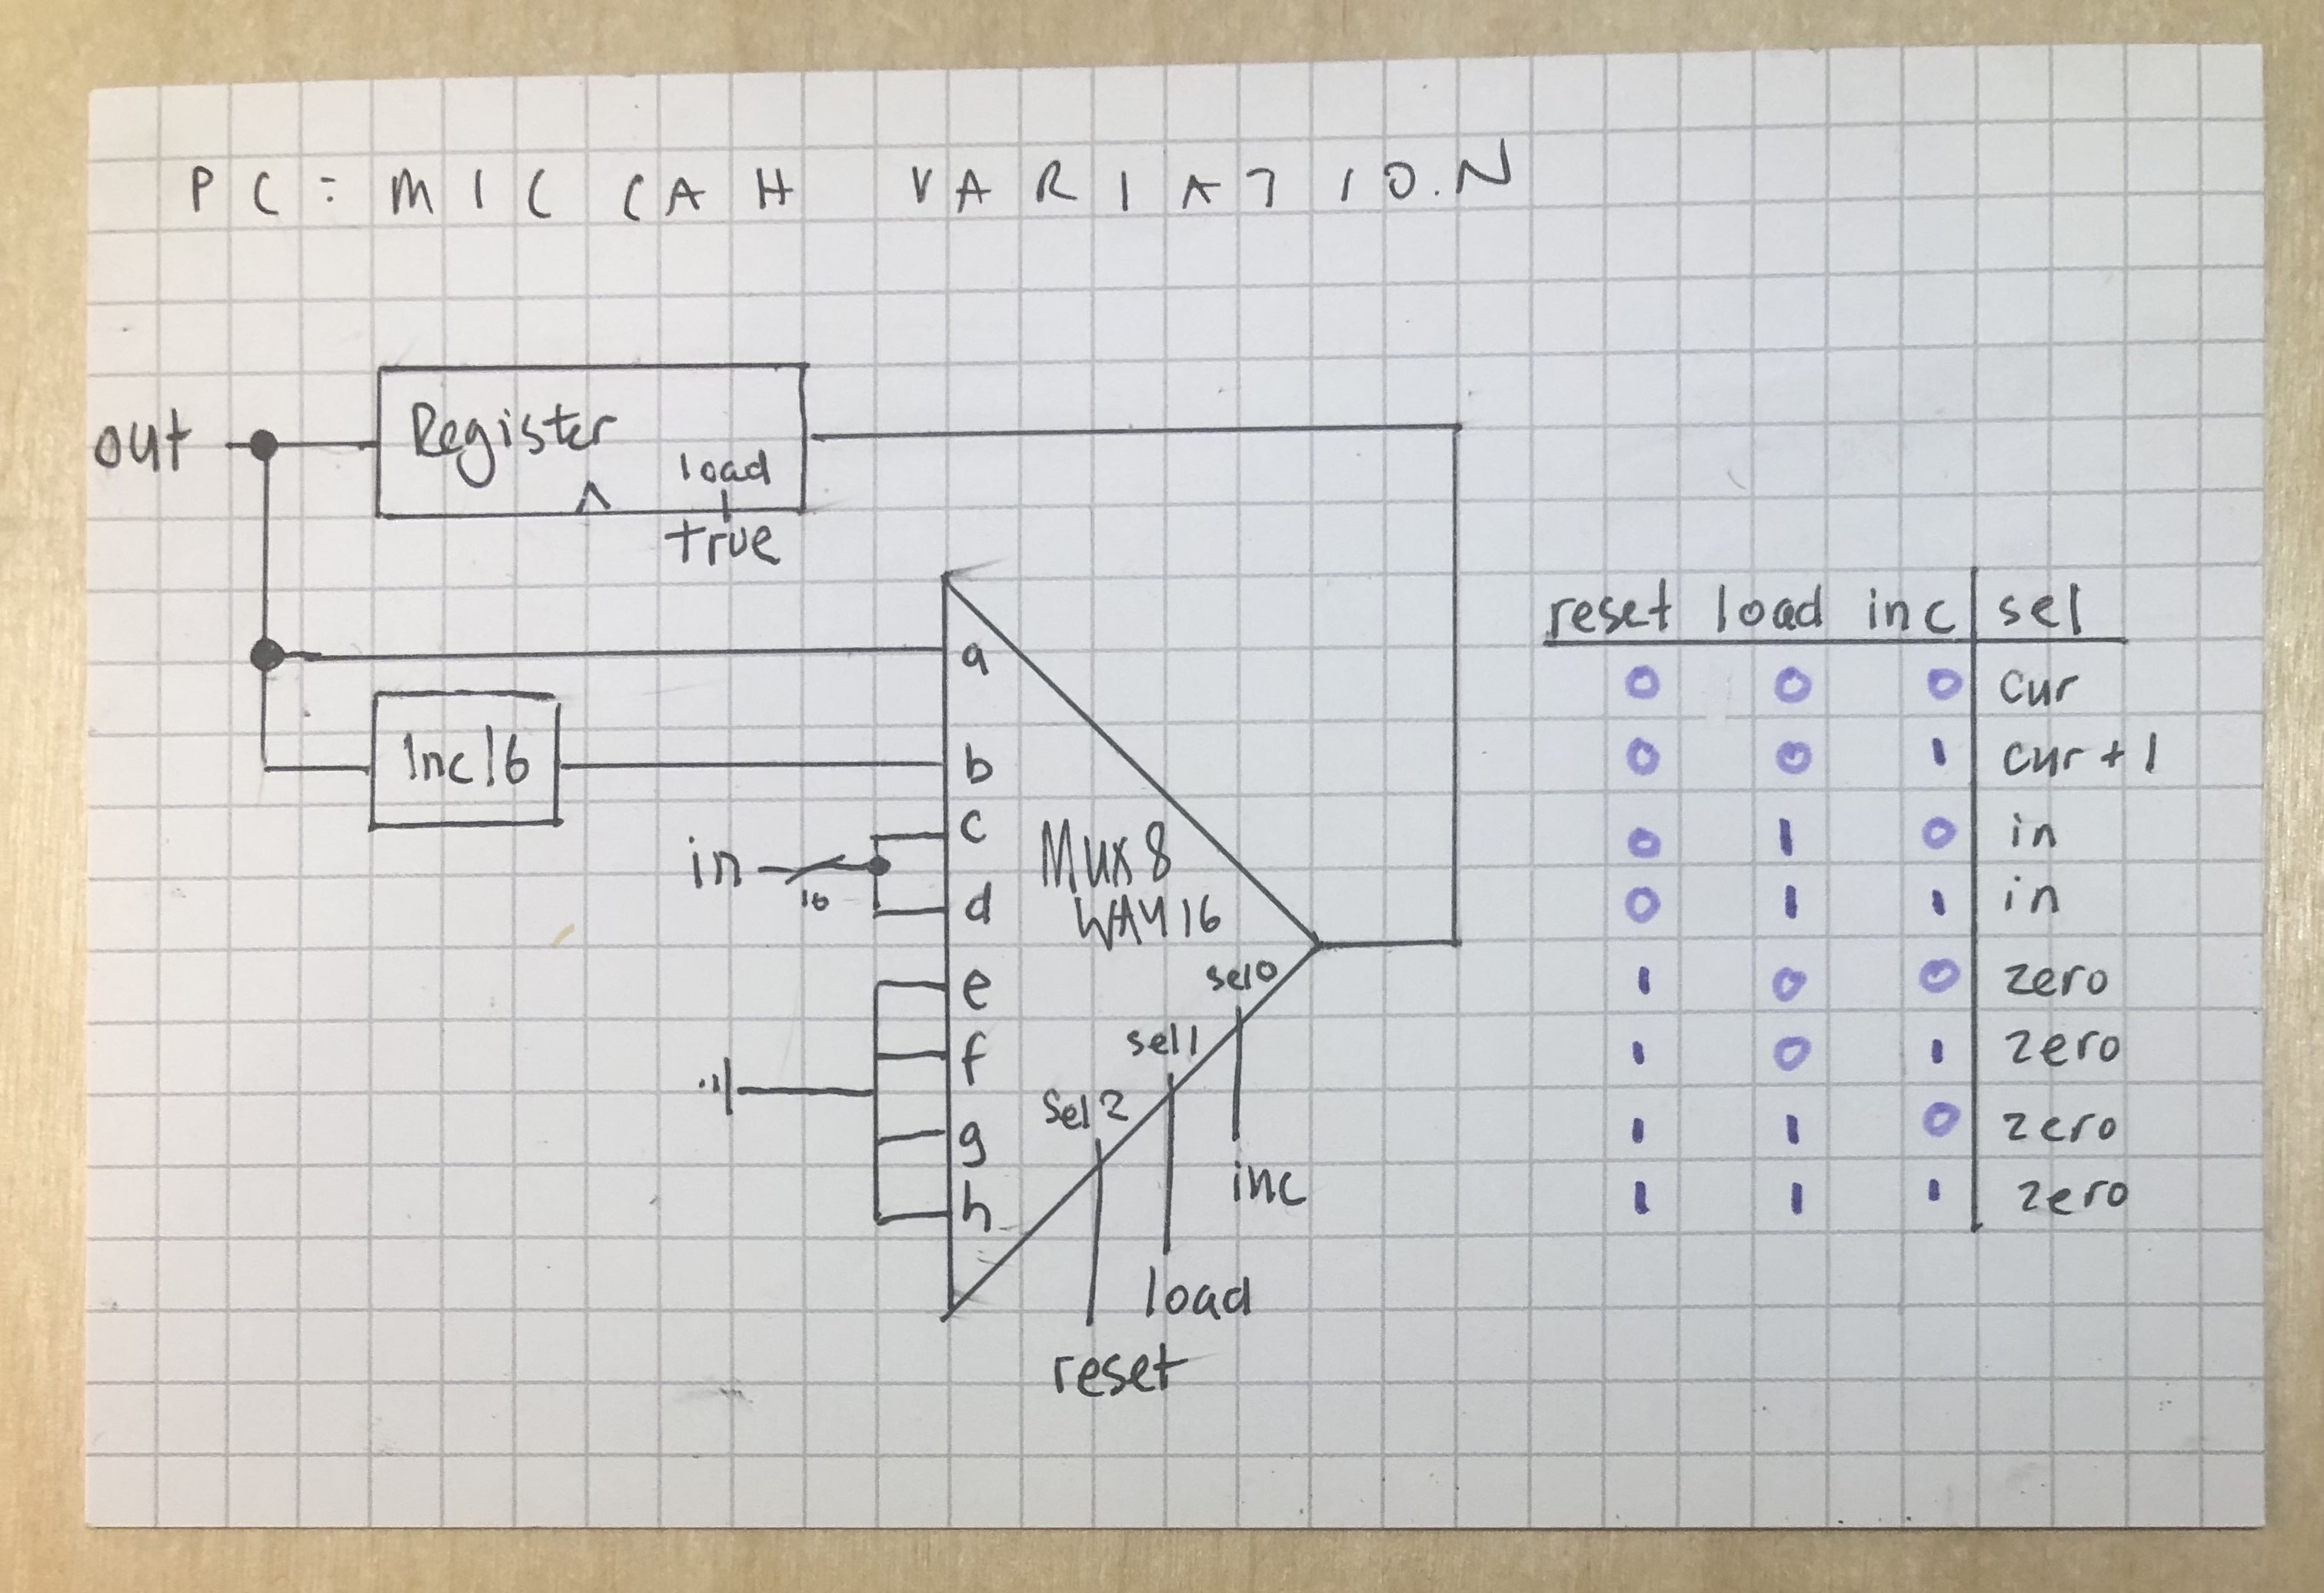 PC: MICCAH VARIATION
out
Register
load
true
a
Inc16
b
c
in
16
d
Mux8
WAY16
e
f
g
h
sel0
sel1
sel2
inc
load
reset
reset load inc sel
0 0 0 cur
0 0 1 cur+1
0 1 0 in
0 1 1 in
1 0 0 zero
1 0 1 zero
1 1 0 zero
1 1 1 zero